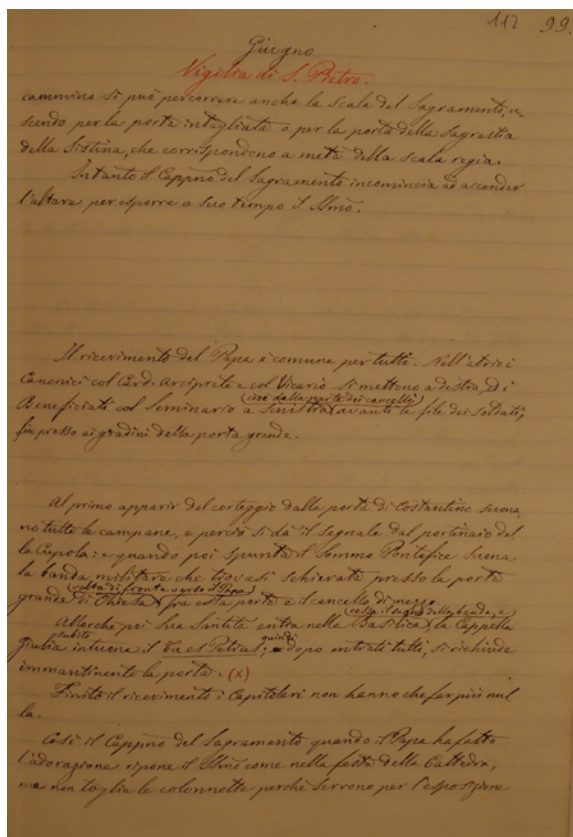 117 99.
Giugno
Vigilia di S. Pietro.
cammino si può percorrere anche la scala del Sagramento, u-
scendo per la porta intagliata o per la porta della Sagrestia
della Sistina, che corrispondono a metà della scala regia.
Intanto il Cappno del Sagramento incomincia ad accender
l'altare per esporre a suo tempo il SSmo.
Il ricevimento del Papa è comune per tutti. Nell'atrio i
Canonici col Card. Arciprete e col Vicario si mettono a destra, ed i
(cioè dalla parte dei cancelli)
Beneficiati col Seminario a sinistra avanti le file dei soldati,
fin presso ai gradini della porta grande.
Al primo apparir del corteggio dalla porta di Costantino suona-
no tutte le campane, e perciò si dà il segnale dal portinaio del-
la Cupola: e quando poi spunta il Sommo Pontefice suona
la banda militare che trovasi schierata presso la porta
(volta di fronte verso il Papa)
grande di Chiesa fra essa porta e il cancello di mezzo.
(cessa il suono della banda, e)
Allorchè poi Sua Santità entra nella Basilica, la Cappella
subito quindi
Giulia intuona il Tu es Petrus; e dopo entrati tutti, si richiude
immantinente la porta. (x)
Finito il ricevimento i Capitolari non hanno che far più nul-
la.
Così il Cappno del Sagramento quando il Papa ha fatto
l'adorazione ripone il SSmo come nella festa della Cattedra,
ma non toglie le colonnette perchè servono per l'esposizione